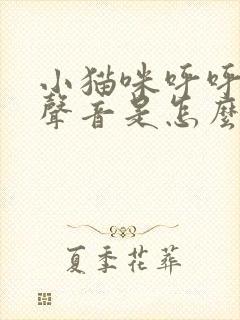 小猫咪呼呼
聲音是怎麼
夏季花葬